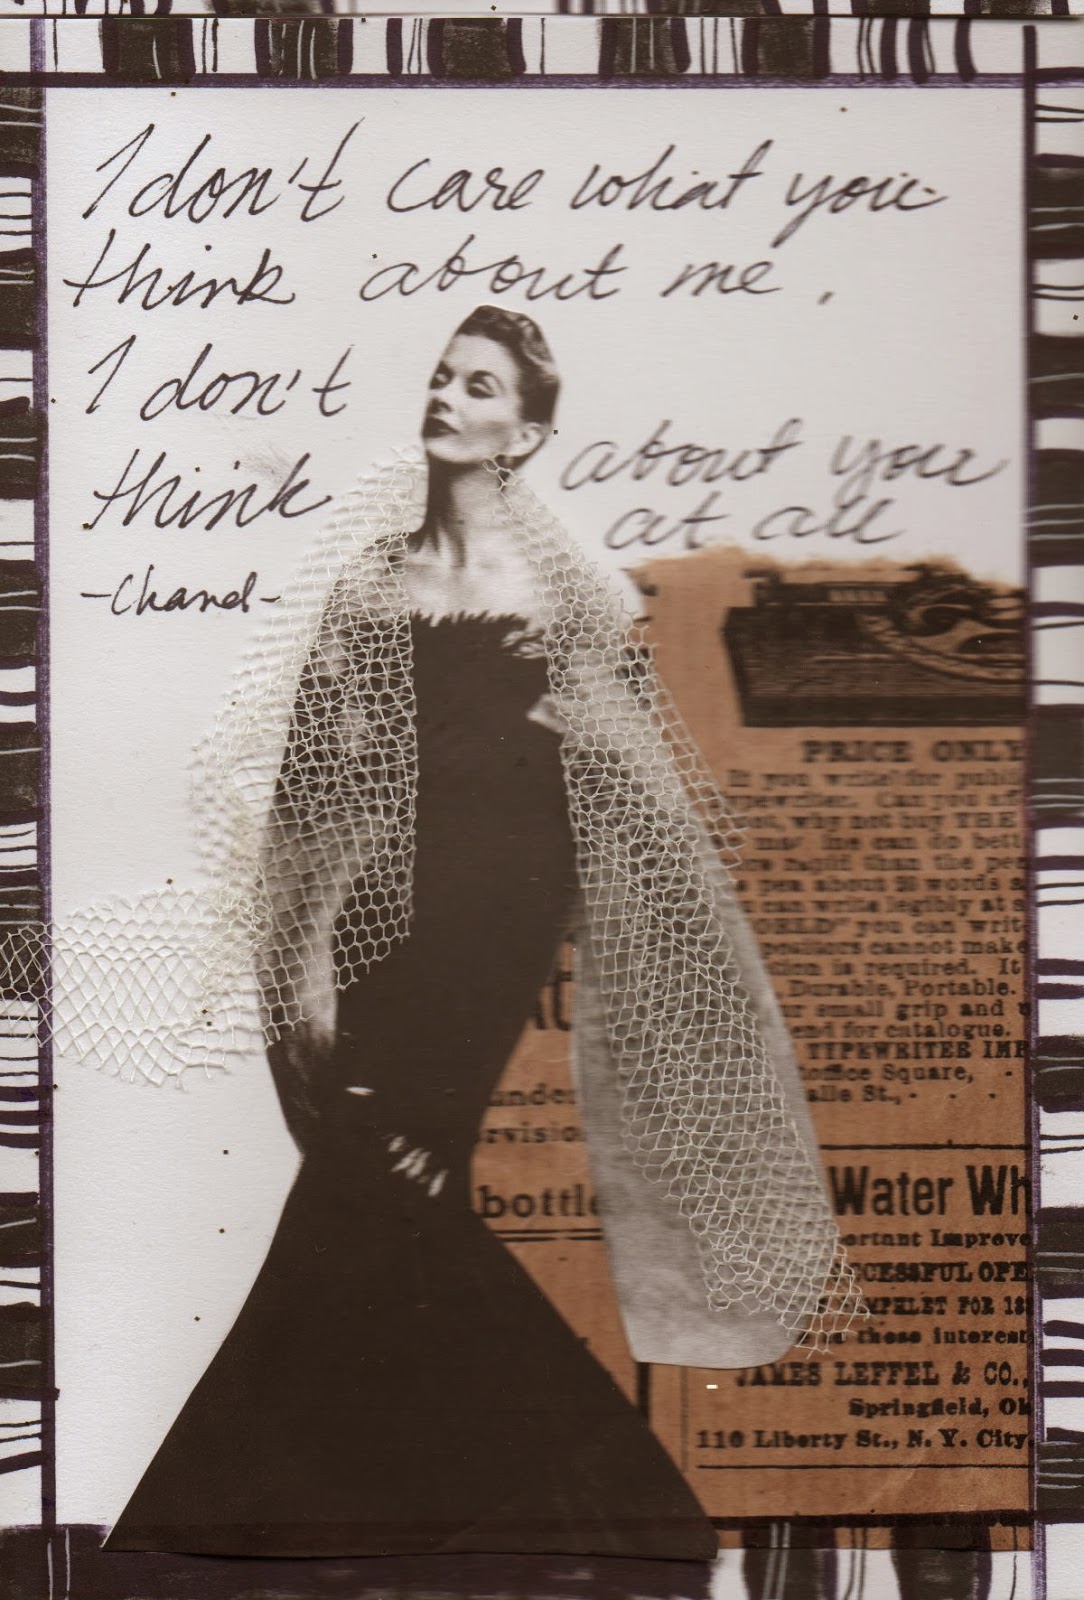 I don't care what you
think about me.
I don't
think about you
at all
-Chanel-
PRICE ONLY
If you write for publi
typewriter. Can you af
not, why not buy THE
line can do bett
more rapid than the pen
a pen about 20 words a
can write legibly at s
WORLD" you can write
positors cannot make
tion is required. It
Durable, Portable.
ur small grip and
end for catalogue.
TYPEWRITER IMP
toffice Square,
alle St.,
under
rvisio
bottle
Water Wh
ortant Improve
CCESSFUL OPE
PAMPHLET FOR 18
these interest
JAMES LEFFEL & CO.,
Springfield, Oh
110 Liberty St., N. Y. City